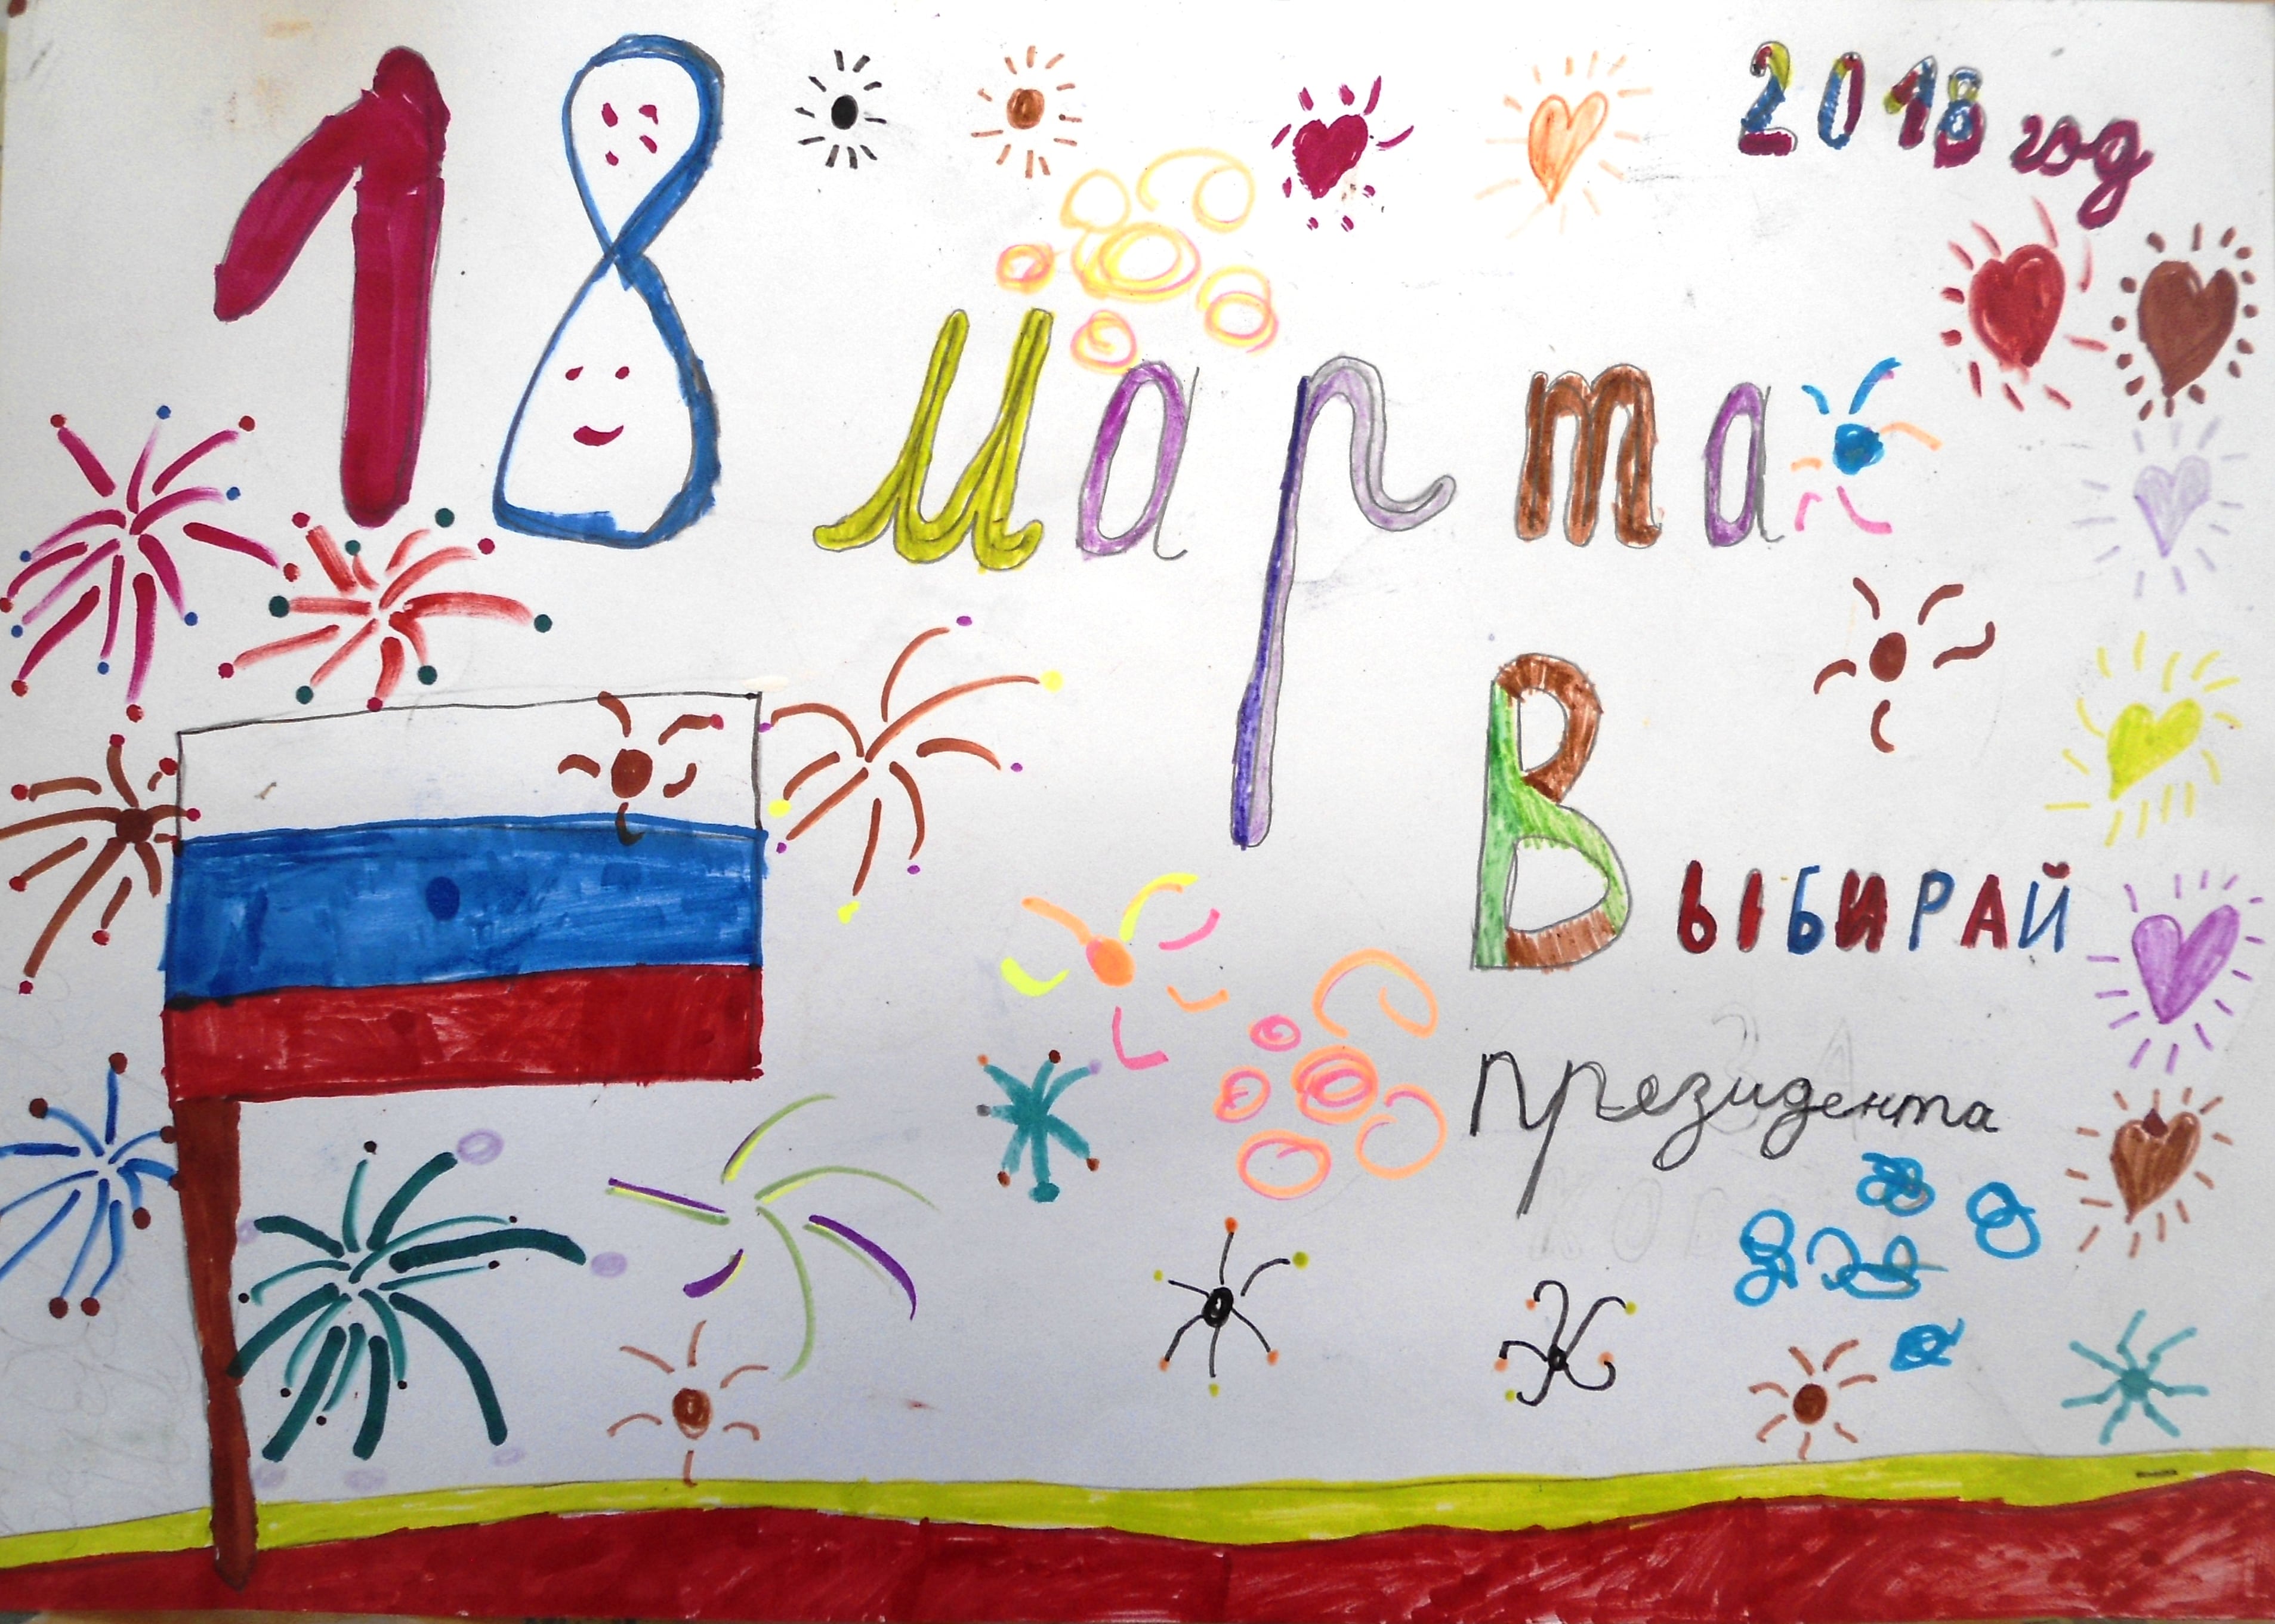 2018 год
18 марта
Выбирай
президента